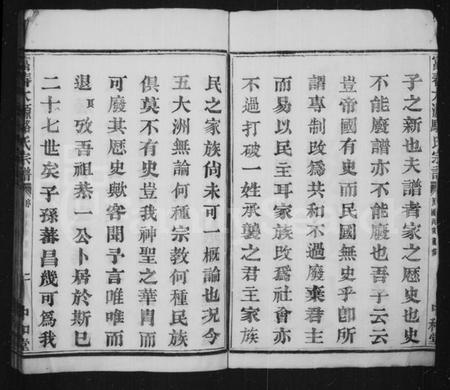 子之新也夫譜者家之歷史也史
不能廢譜亦不能廢也吾子云云
豈帝國有史而民國無史乎卽所
謂專制改爲共和不過廢棄君主
而易以民主耳家族改爲社會亦
不過打破一姓承襲之君主家族
民之家族尙未可一概論也況今
五大洲無論何種宗敎何種民族
俱莫不有史豈我神聖之華胄而
可廢其歷史歟客聞予言唯唯而
退攷吾祖恭一公卜居於斯已
二十七世矣子孫蕃昌幾可爲我
中和堂